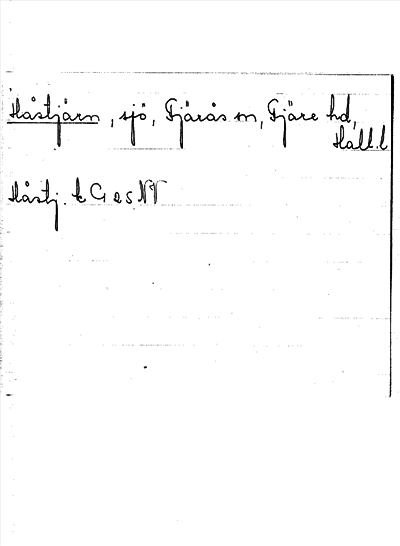 Håstjärn, sjö, Fjärås sn, Fjäre hd,
Hall. l
Håstj. k G 2 s NV